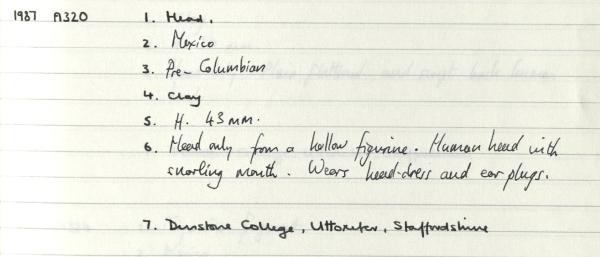 1937 A320 1. Head.
2. Mexico
3. Pre-Columbian
4. Clay
5. H. 43 mm.
6. Head only from a hollow figurine. Human head with
snarling mouth. Wears head-dress and ear plugs.
7. Dunstone College, Uttoxeter, Staffordshire